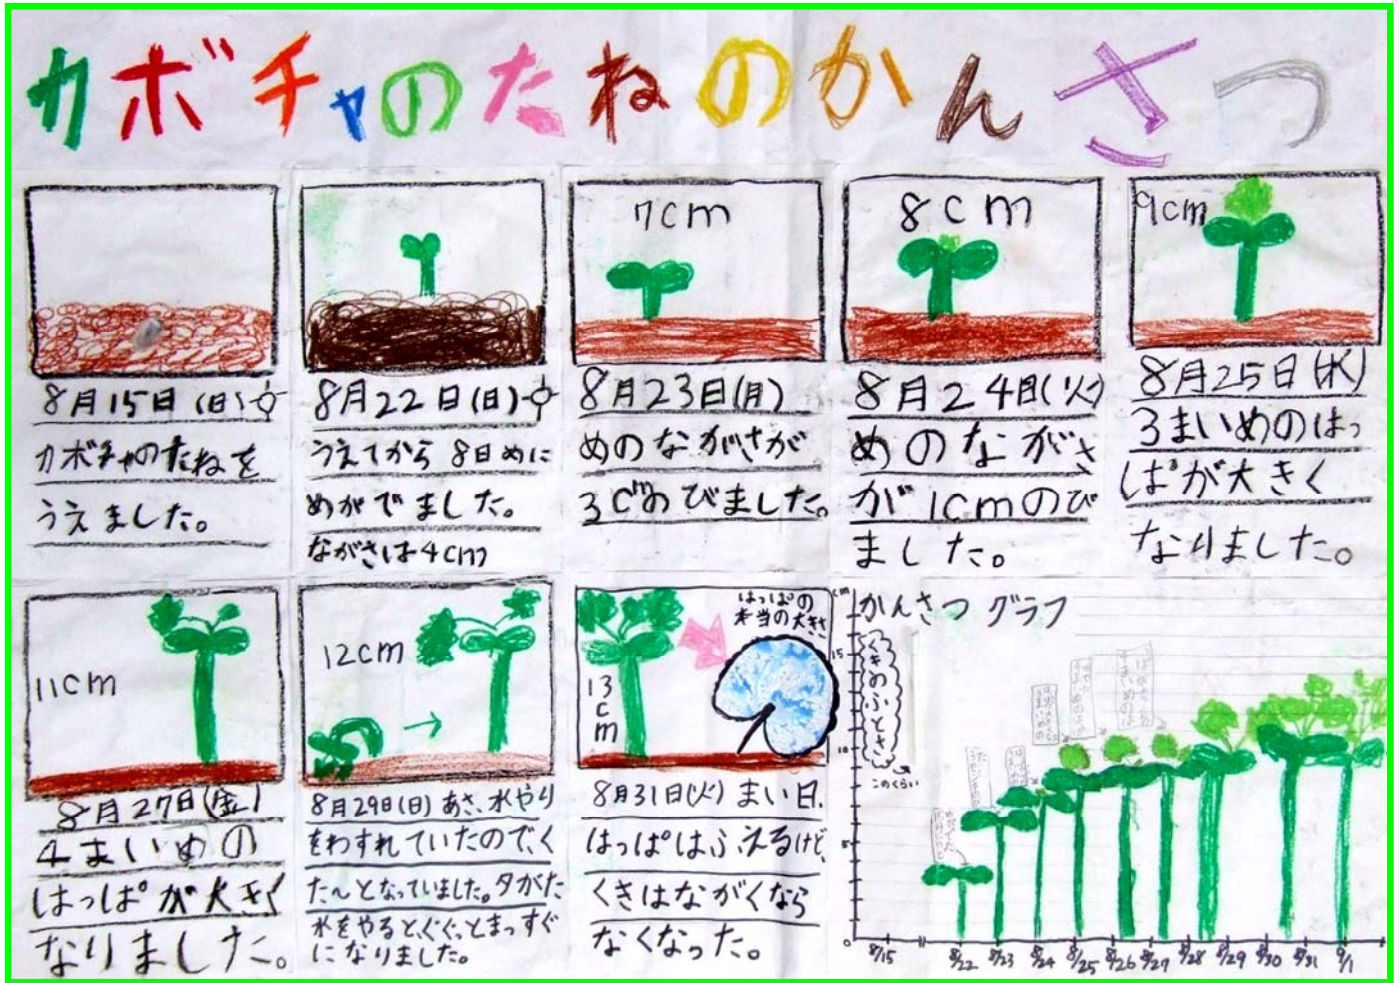 カボチャのたねのかんさつ
8月15日(日)
カボチャのたねを
うえました。
8月22日(日)
うえてから8日めに
めがでました。
ながさは4cm
7cm
8月23日(月)
めのながさが
3cmのびました。
8cm
8月24日(火)
めのながさ
が1cmのび
ました。
9cm
8月25日(水)
3まいめのはっ
ぱが大きく
なりました。
11cm
8月27日(金)
4まいめの
はっぱが大きく
なりました。
12cm
8月29日(日)あさ、水やり
をわすれていたので、く
た〜となっていました。夕がた
水をやると、ぐぐっとまっすぐ
になりました。
13cm
はっぱの
本当の大きさ
8月31日(火)まい日、
はっぱはふえるけど、
くきはながくなら
なくなった。
かんさつグラフ
cm
15
10
5
0
くきのふとさ
このくらい
8/15
8/22
8/23
8/24
8/25
8/26
8/27
8/28
8/29
8/30
8/31
9/1